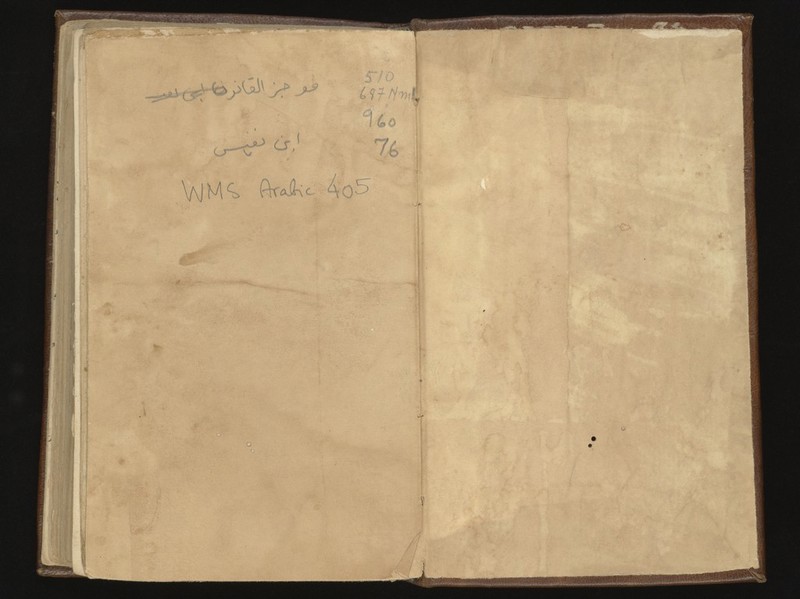 موجز القانون
510
697 Nml
960
ابن نفيس
76
WMS Arabic 405